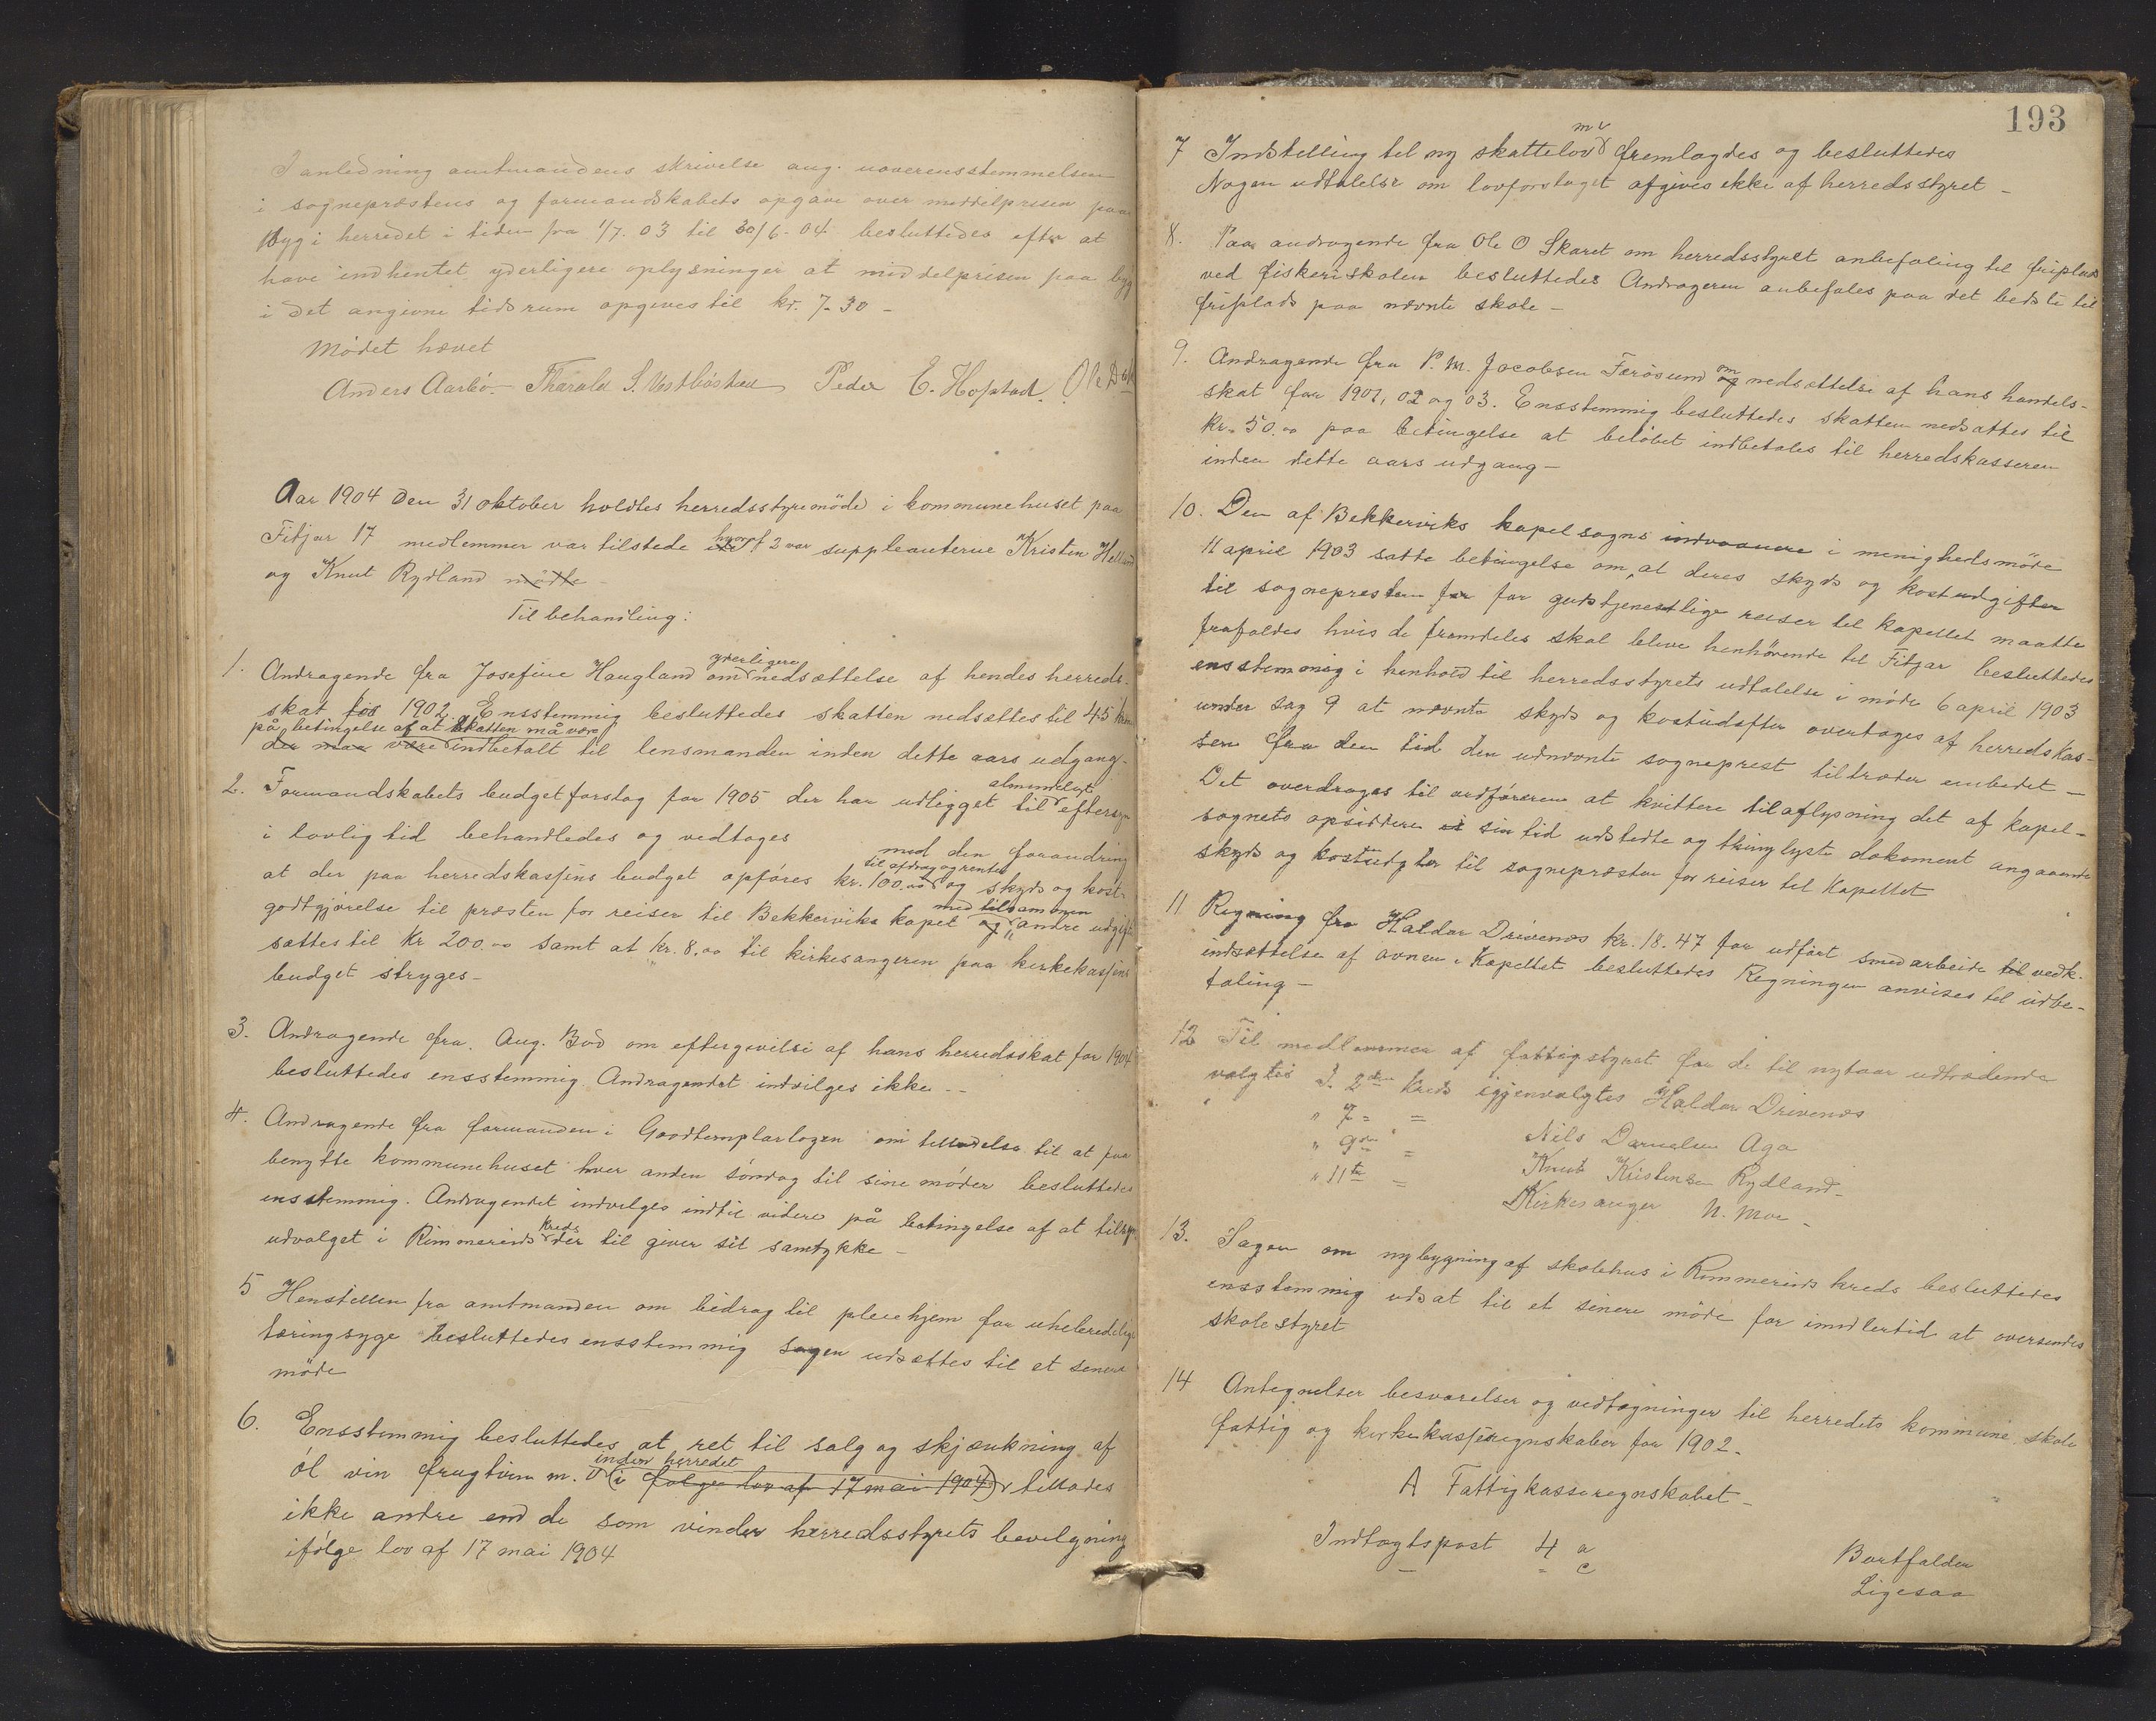 I anledning amtmandens skrivelse ang. uoverensstemmelsen
i sogneprestens og formandskabets opgave over middelprisen paa
Byg i herredet i tiden fra 1/7. 03 til 30/6-04 besluttedes efter at
have indhentet yderligere oplysninger at middelprisen paa byg
i det angivne tidsrum opgives til kr. 7-30 -
Mødet hævet
Anders Aarbø. Tharald S. Vestbøstad Peder E. Hopstad. Ole
Aar 1904 den 31 oktober holdtes herredsstyremøde i kommunehuset paa
Fitjar 17 medlemmer var tilstede hvoraf 2 var suppleanterne Kristen Helland
og Knut Rydland mødte -
Til behandling:
1. Andragende fra Josefine Haugland om yderligere nedsættelse af hendes herreds-
skat for 1902. Ensstemmig besluttedes skatten nedsættes til 45 kr
på betingelse af at skatten må være
der maa være indbetalt til lensmanden inden dette aars udgang-
2. Formandskabets budgetforslag for 1905 der har udligget til almindeligt eftersyn
i lovlig tid behandledes og vedtoges
med den forandring
at der paa herredskassens budget opføres kr. 100.00 til afdrag og renter og skyds og kost-
godtgjørelse til præsten for reiser til Bekkerviks kapel og med tilsammen andre udgift
sættes til kr 200.00 samt at kr. 8.00 til kirkesangeren paa kirkekassens
budget stryges-
3. Andragende fra. Aug. Bød om eftergivelse af hans herredsskat for 1904
besluttedes ensstemmig Andragendet indvilges ikke --
4. Andragende fra formanden i Goodtemplarlogen om tilladelse til at faa
benytte kommunehuset hver anden søndag til sine møder besluttedes
ensstemmig. Andragendet indvilges indtil videre på betingelse af at tilsyns
udvalget i Rimmereids kreds der til giver sit samtykke -
5 Henstillen fra amtmanden om bidrag til pleiehjem for uhelbredelige
tæringsyge besluttedes ensstemmig sagen udsættes til et senere
møde
6. Ensstemmig besluttedes at ret til salg og skjænkning af
øl vin frugtvin m. v inden herredet (i følge lov af 17 mai 1904) tillades
ikke andre end de som vinder herredsstyrets bevilgning
ifølge lov af 17 mai 1904
193
7 Indstilling til ny skattelov m v fremlagdes og besluttedes
Nogen udtalelse om lovforslaget afgives ikke af herredsstyret -
8. Paa andragende fra Ole O Skaret om herredsstyrets anbefaling til friplads
ved fiskeriskolen besluttedes Andrageren anbefales paa det bedste til
friplads paa nævnte skole -
9. Andragende fra P. M. Jacobsen Færøsund om og nedsættelse af hans handels-
skat for 1901, 02 og 03. Ensstemmig besluttedes skatten nedsættes til
kr. 50.00 paa betingelse at beløbet indbetales til herredskasseren
inden dette aars udgang -
10. Den af Bekkerviks kapelsogns indvaanere i menighedsmøde
11 april 1903 satte betingelse om, at deres skyds og kostudgifter
til sognepresten for for gudstjenestlige reiser til kapellet maatte
frafaldes hvis de fremdeles skal blive henhørende til Fitjar besluttedes
ensstemmig i henhold til herredsstyrets udtalelse i møde 6 april 1903
under sag 9 at nævnte skyds og kostudgifter overtages af herredskas-
sen fra den tid den udnævnte sogneprest tiltræder embedet -
Det overdrages til ordføreren at kvittere til aflysning det af kapel-
sognets opsiddere i sin tid udstedte og thinglyste dokument angaaende
skyds og kostudgter til sognepresten for reiser til Kapellet
11 Regning fra Haldor Drivenes kr. 18.47 for udført smedarbeide til vedk.
indsættelse af ovnen i Kapellet besluttedes Regningen anvises til udbe-
taling -
12 Til medlemmer af fattigstyret for de til nytaar udtrædende
valgtes I. 2den kreds igjenvalgtes Haldor Drivenes
" 7 - = Nils Danielsen Aga
" 9de = Knut Kristensen Rydland-
" 11te = Kirkesanger N. Moe -
13. Sagen om nybygning af skolehus i Rimmereids kreds besluttedes
ensstemmig udsat til et senere møde for imidlertid at oversendes
skolestyret
14 Antegnelser besvarelser og vedtegninger til herredets kommune skole
fattig og kirkekasseregnskaber for 1902-
A Fattigkasseregnskabet -
Indtægtspost 4 a Bortfalder
- - c Ligesaa